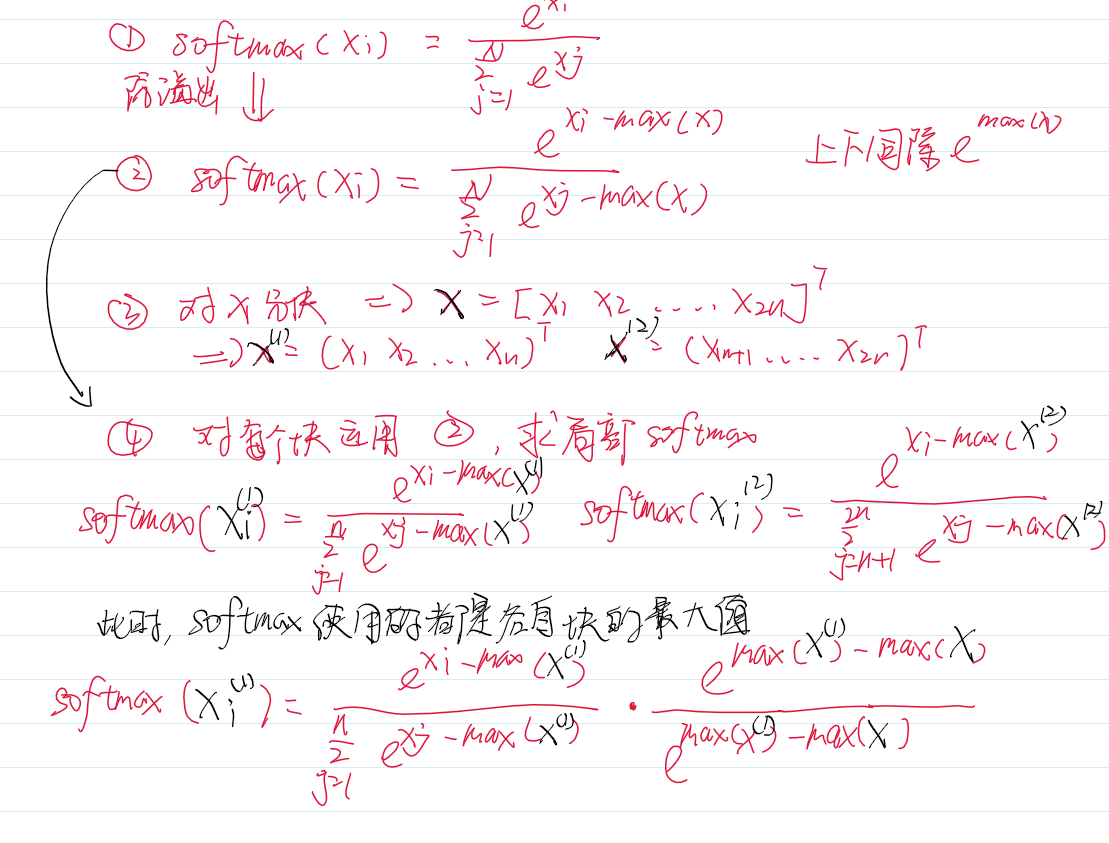 ① softmax(xi) = e^xi / Σ_{j=1}^{N} e^xj
防溢出 ⇓
② softmax(xi) = e^{xi-max(x)} / Σ_{j=1}^{N} e^{xj-max(x)} 上下同除 e^{max(x)}
③ 对x分块 => X = [x1 x2 ..... x2n]^T
=> X^(1) = (x1 x2 ... xn)^T X^(2) = (xn+1 ..... x2n)^T
④ 对每个块应用②,求局部softmax
softmax(xi^(1)) = e^{xi-max(X^(1))} / Σ_{j=1}^{n} e^{xj-max(X^(1))} softmax(xi^(2)) = e^{xi-max(X^(2))} / Σ_{j=n+1}^{2n} e^{xj-max(X^(2))}
此时, softmax使用的都是各自块的最大值
softmax(xi^(1)) = e^{xi-max(X^(1))} / Σ_{j=1}^{n} e^{xj-max(X^(1))} · e^{max(X^(1))-max(X)} / e^{max(X^(1))-max(X)}